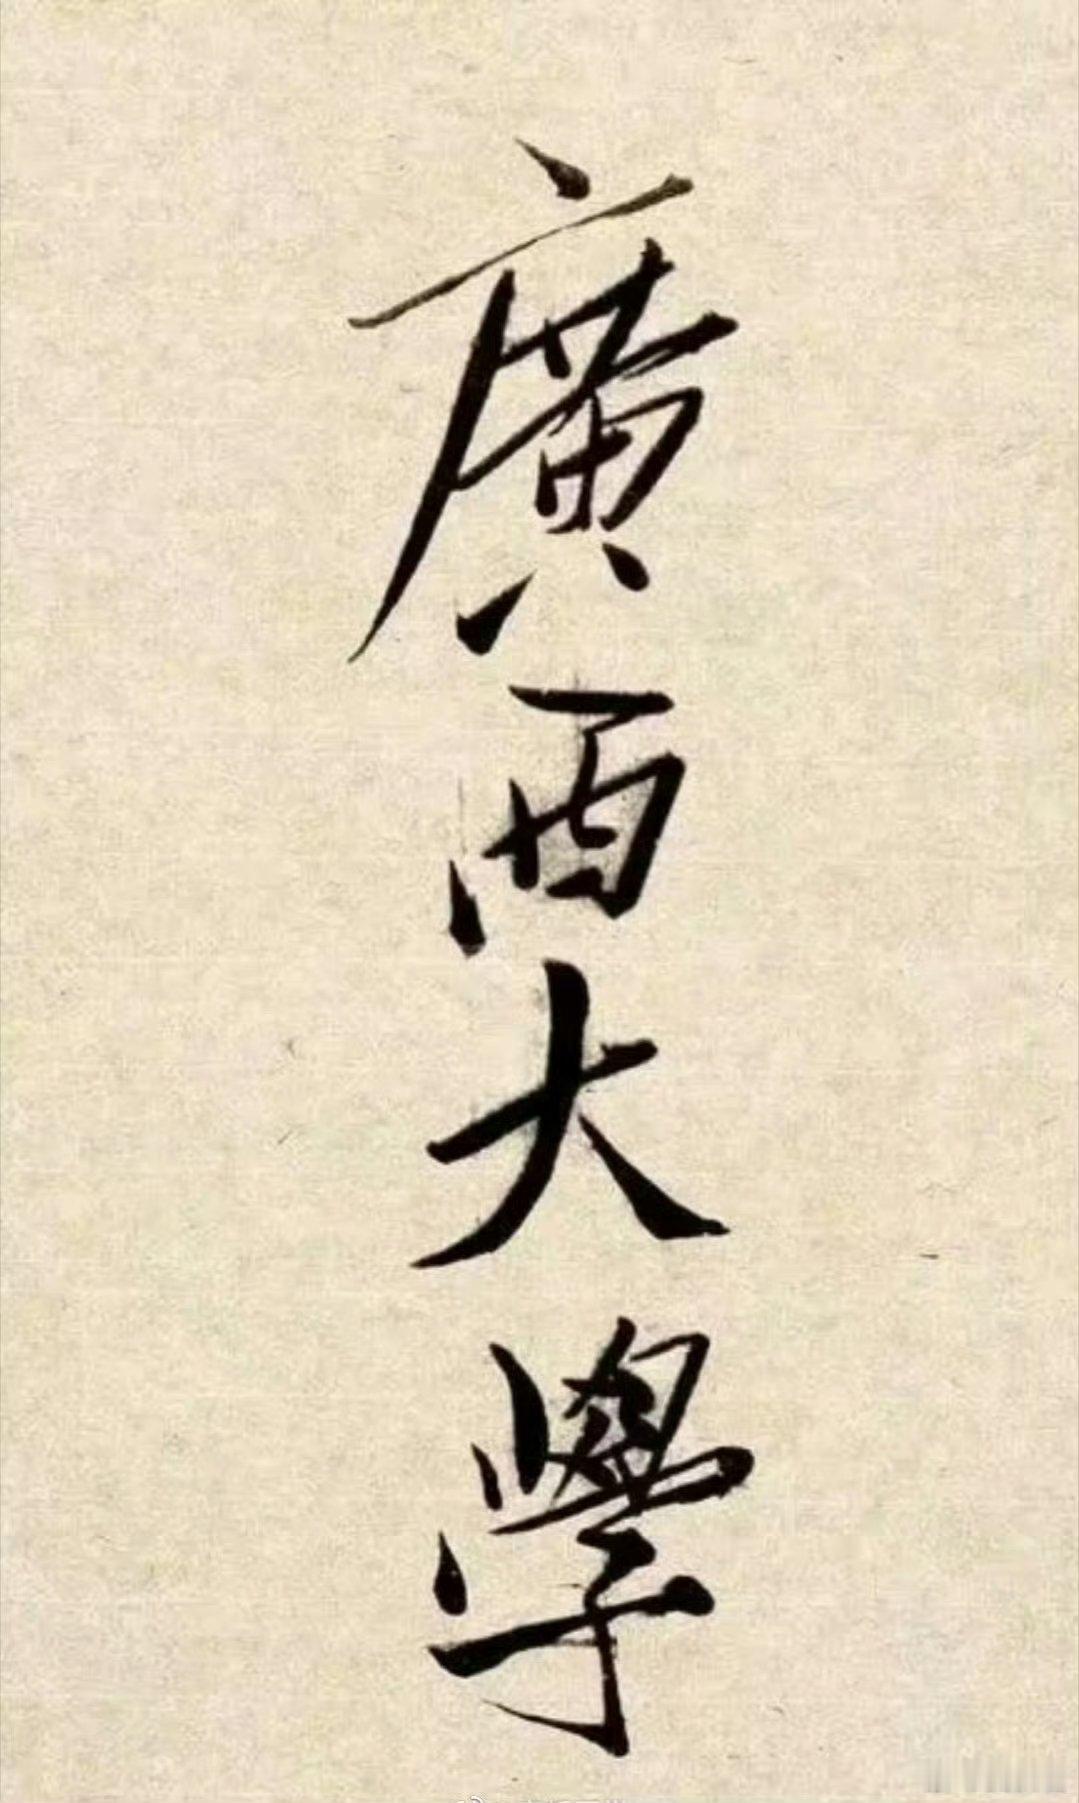 廣西大學